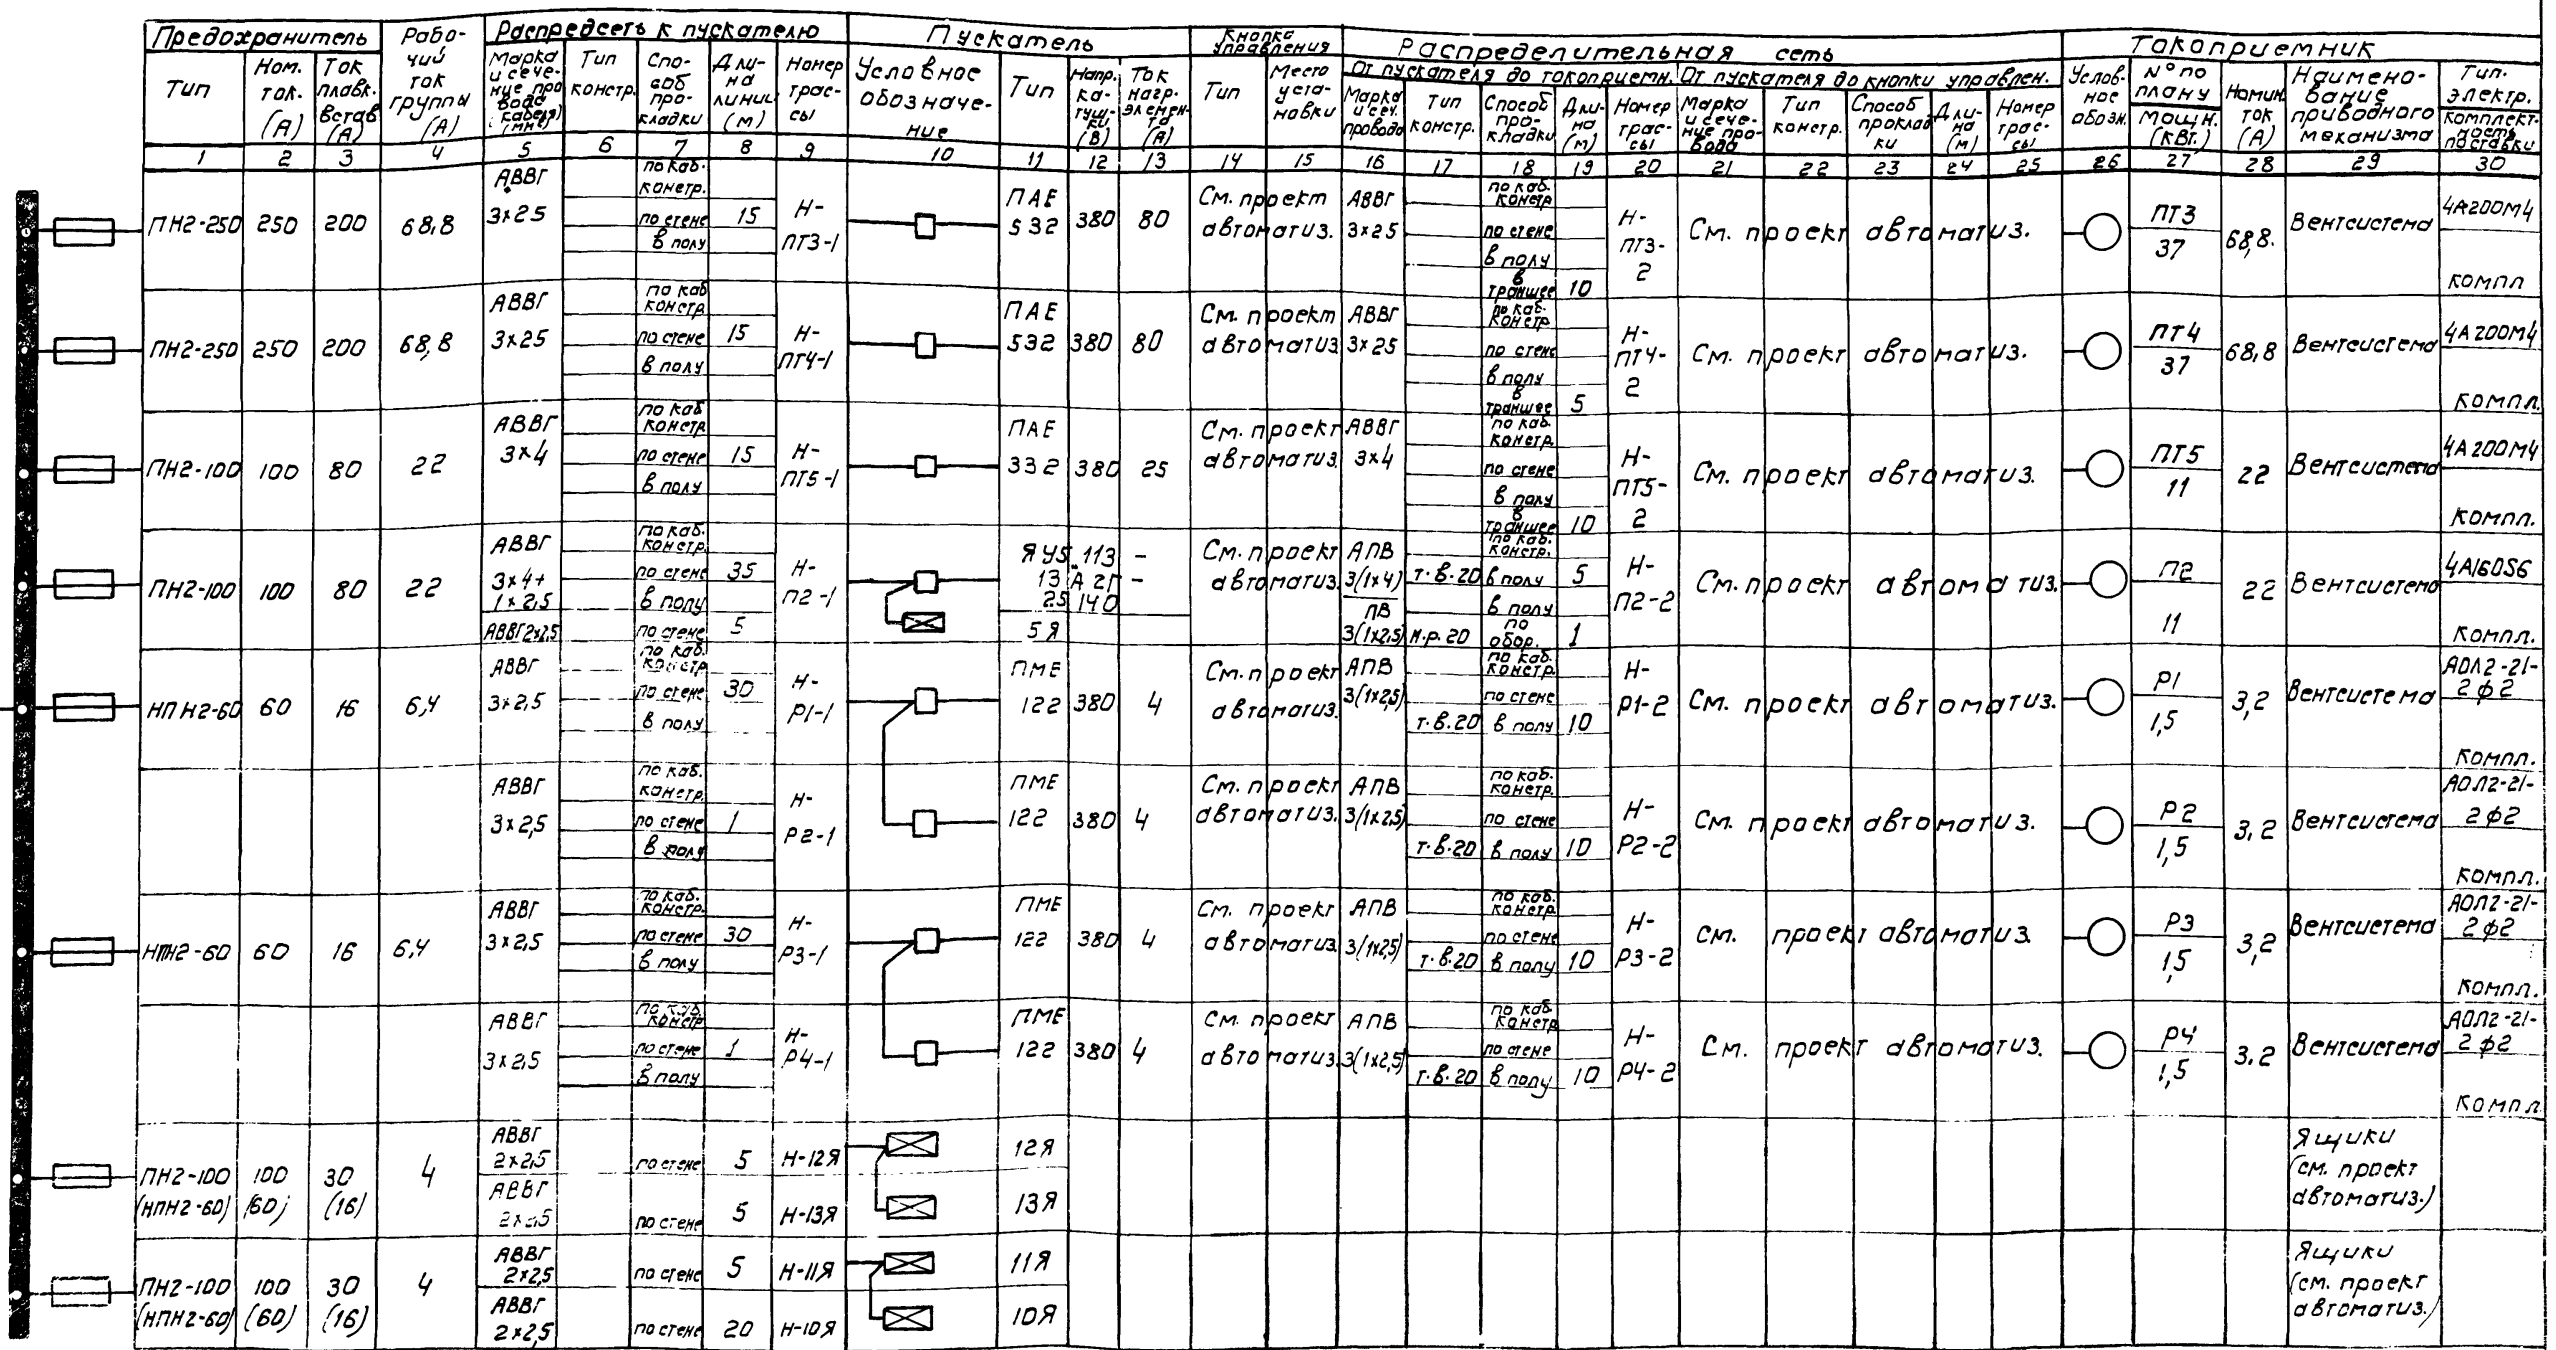 Предохранитель Рабочий ток группы (А) Распредсеть к пускателю Пускатель Кнопка управления Распределительная сеть Токоприемник
От пускателя до токоприемн. От пускателя до кнопки управлен.
Тип Ном. ток. (А) Ток плавк. встав (А) Марка и сечение провода (кабеля) (мм²) Тип констр. Способ прокладки Длина линии (м) Номер трассы Условное обозначение Тип Напр. катушки (В) Ток нагр. элемента (А) Тип Место установки Марка и сеч. провода Тип констр. Способ прокладки Длина (м) Номер трассы Марка и сечение провода Тип констр. Способ прокладки Длина (м) Номер трассы Условное обозн. N° по плану Мощн. (кВт.) Номин. ток (А) Наименование приводного механизма Тип. электр. Комплектность поставки
1 2 3 4 5 6 7 8 9 10 11 12 13 14 15 16 17 18 19 20 21 22 23 24 25 26 27 28 29 30
ПН2-250 250 200 68,8 АВВГ 3×25 по каб. констр. по стене 15 в полу Н-ПТ3-1 ПАЕ 532 380 80 См. проект автоматиз. АВВГ 3×25 по каб. констр по стене в полу в траншее 10 Н-ПТ3-2 См. проект автоматиз. ПТ3 37 68,8. Вентсистема 4А200М4 компл
ПН2-250 250 200 68,8 АВВГ 3×25 по каб констр по стене 15 в полу Н-ПТ4-1 ПАЕ 532 380 80 См. проект автоматиз АВВГ 3×25 по каб. констр по стене в полу в траншее 5 Н-ПТ4-2 См. проект автоматиз. ПТ4 37 68,8 Вентсистема 4А200М4 компл.
ПН2-100 100 80 22 АВВГ 3×4 по каб констр по стене 15 в полу Н-ПТ5-1 ПАЕ 332 380 25 См. проект автоматиз. АВВГ 3×4 по каб. констр. по стене в полу в траншее 10 Н-ПТ5-2 См. проект автоматиз. ПТ5 11 22 Вентсистема 4А200М4 компл.
ПН2-100 100 80 22 АВВГ 3×4+1×2,5 АВВГ2×2,5 по каб. констр. по стене 35 в полу по стене 5 Н-П2-1 ЯУ5 113 - 13 А 2Г - 25 140 5Я См. проект автоматиз. АПВ 3(1×4) ПВ 3(1×2,5) т.в.20 м.р.20 по каб. констр. в полу 5 в полу по обор. 1 Н-П2-2 См. проект автоматиз. П2 11 22 Вентсистема 4А160S6 Компл.
НПН2-60 60 16 6,4 АВВГ 3×2,5 по каб. констр по стене 30 в полу Н-Р1-1 ПМЕ 122 380 4 См. проект автоматиз. АПВ 3(1×2,5) по каб. констр. по стене т.в.20 в полу 10 Н-Р1-2 См. проект автоматиз. Р1 1,5 3,2 Вентсистема АОЛ2-21-2ф2 Компл.
АВВГ 3×2,5 по каб. констр. по стене 1 в полу Н-Р2-1 ПМЕ 122 380 4 См. проект автоматиз. АПВ 3(1×2,5) по каб. констр. по стене т.в.20 в полу 10 Н-Р2-2 См. проект автоматиз. Р2 1,5 3,2 Вентсистема АОЛ2-21-2ф2 Компл.
НПН2-60 60 16 6,4 АВВГ 3×2,5 по каб. констр. по стене 30 в полу Н-Р3-1 ПМЕ 122 380 4 См. проект автоматиз. АПВ 3(1×2,5) по каб. констр по стене т.в.20 в полу 10 Н-Р3-2 см. проект автоматиз. Р3 1,5 3,2 Вентсистема АОЛ2-21-2ф2 Компл.
АВВГ 3×2,5 по каб. констр по стене 1 в полу Н-Р4-1 ПМЕ 122 380 4 См. проект автоматиз. АПВ 3(1×2,5) по каб констр по стене т.в.20 в полу 10 Н-Р4-2 См. проект автоматиз. Р4 1,5 3,2 Вентсистема АОЛ2-21-2ф2 Компл
ПН2-100 (НПН2-60) 100 (60) 30 (16) 4 АВВГ 2×2,5 по стене 5 Н-12Я 12Я Ящики (см. проект автоматиз.)
АВВГ 2×2,5 по стене 5 Н-13Я 13Я
ПН2-100 (НПН2-60) 100 (60) 30 (16) 4 АВВГ 2×2,5 по стене 5 Н-11Я 11Я Ящики (см. проект автоматиз.)
АВВГ 2×2,5 по стене 20 Н-10Я 10Я